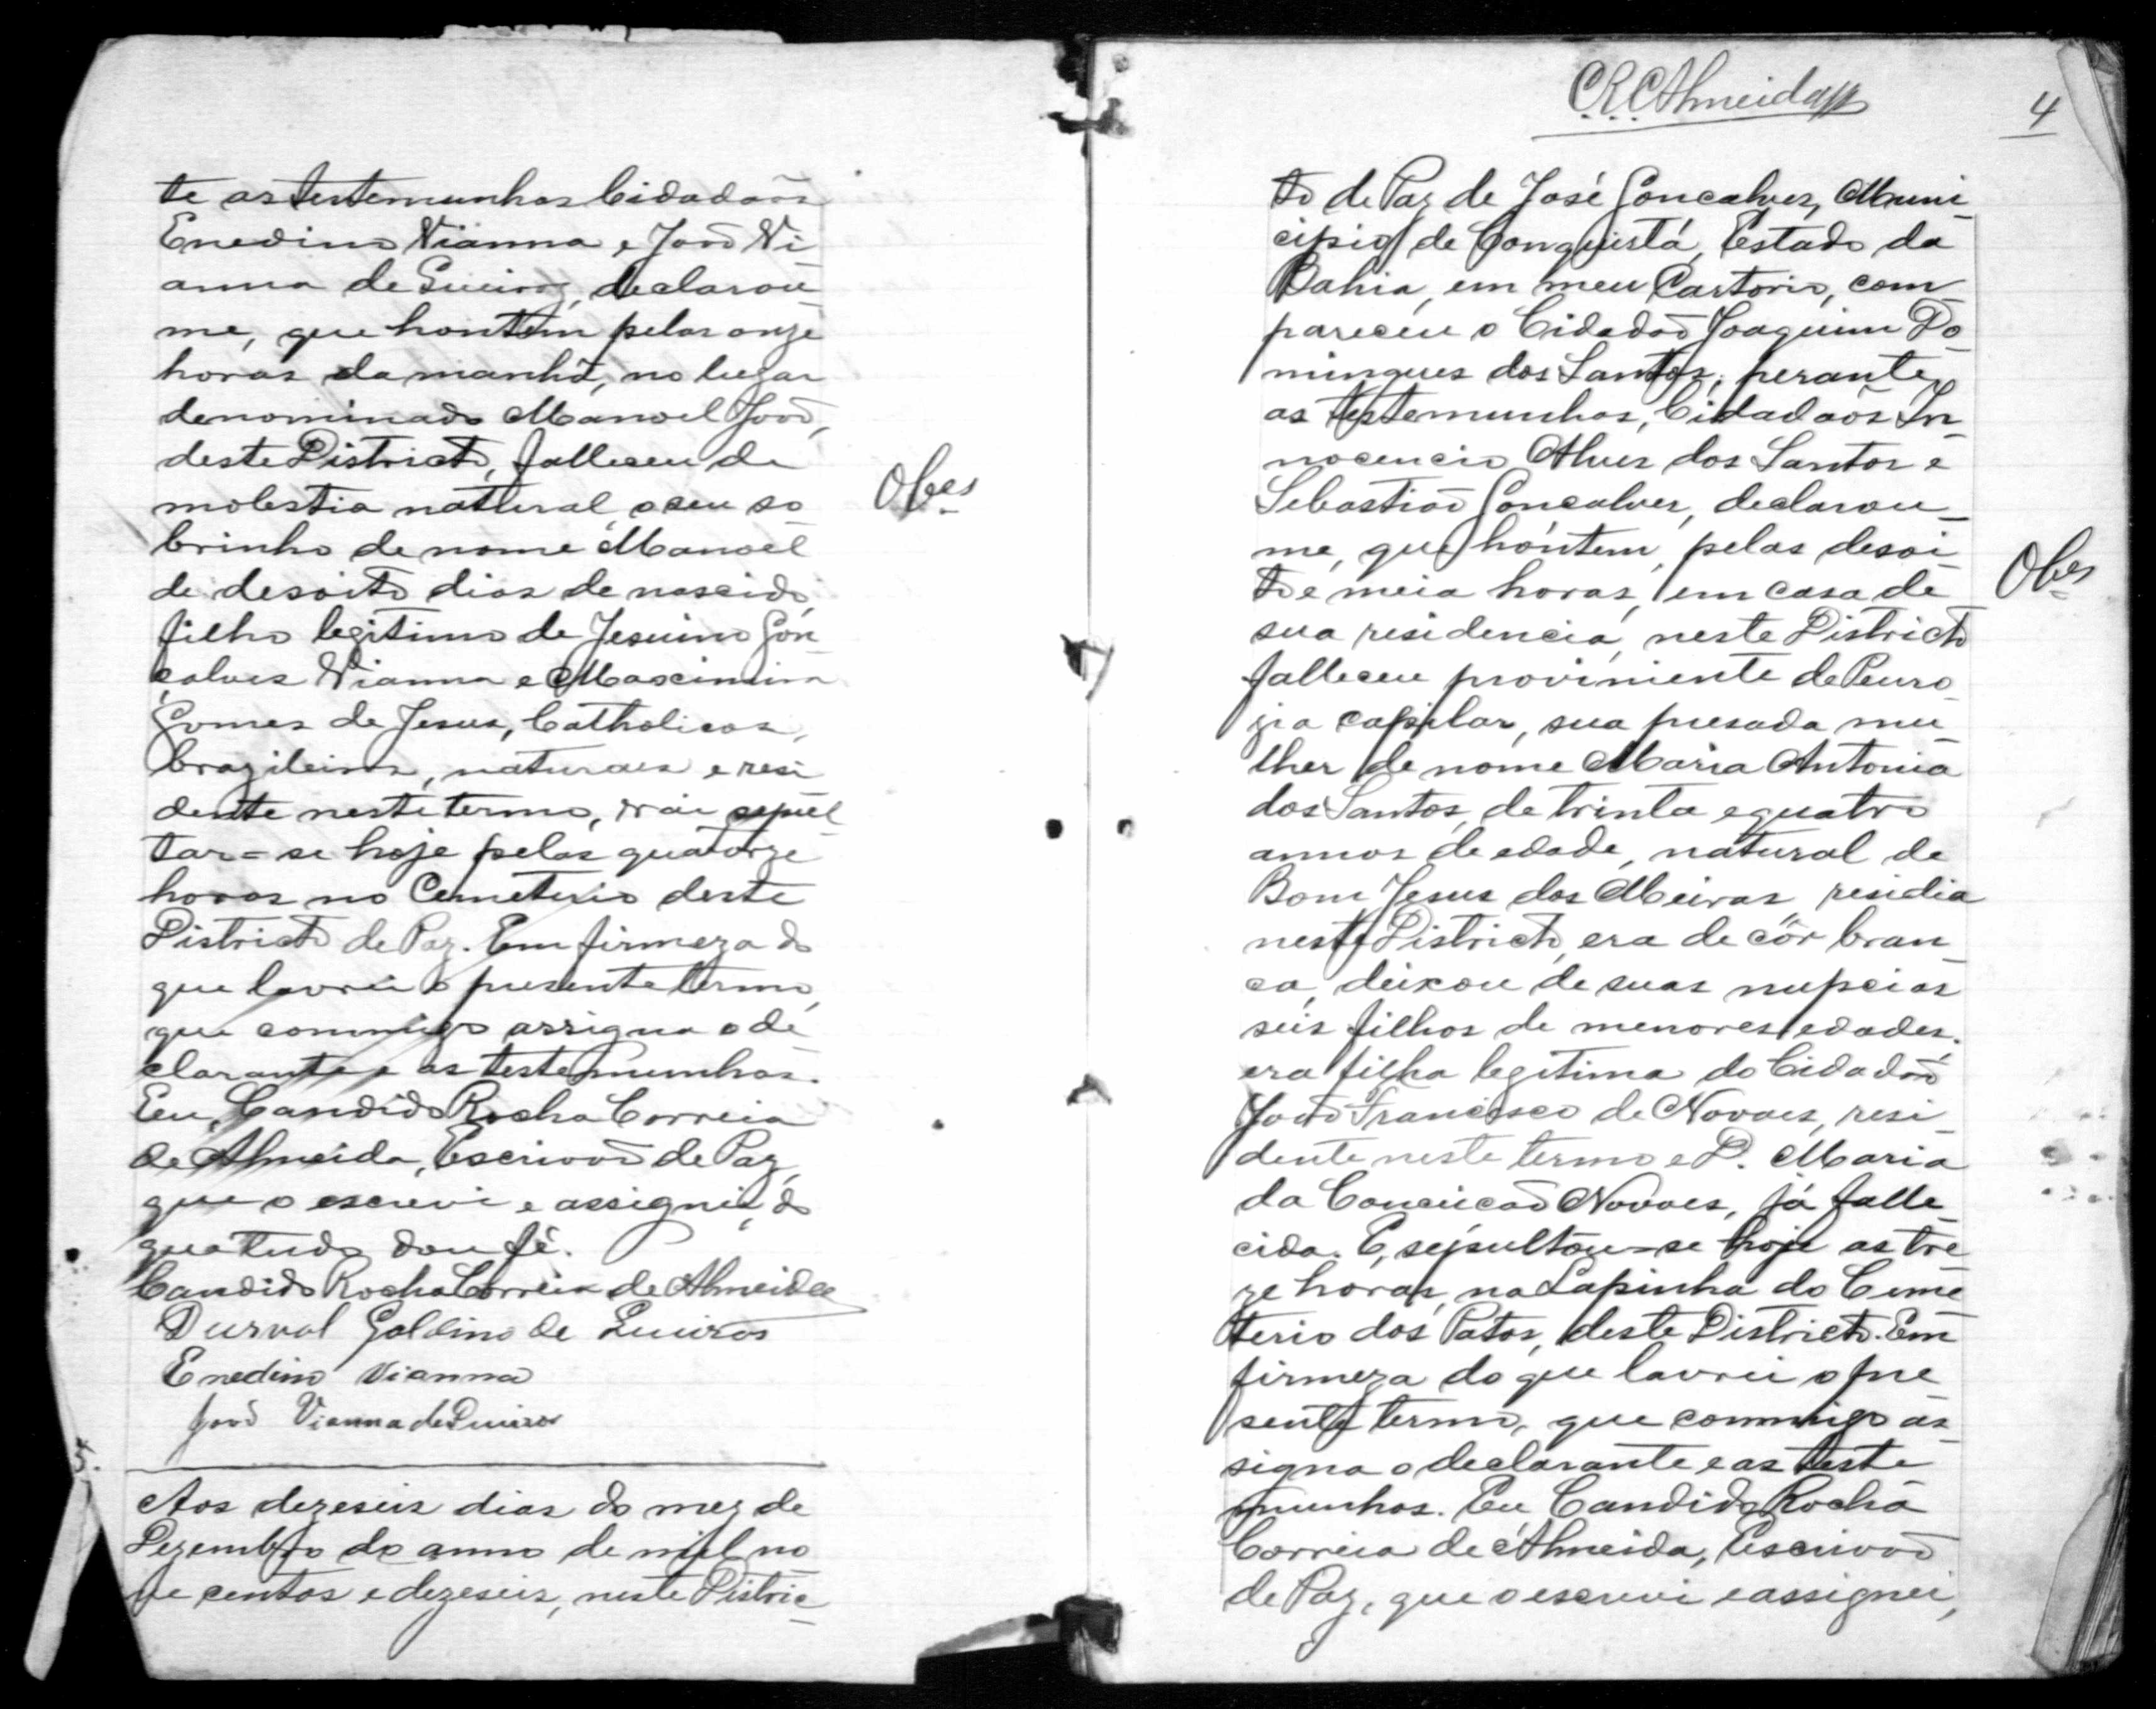 te as testemunhas Cidadaõs
Enedino Vianna e Joaõ Vi-
anna de Queiroz, declarou-
me, que hontem pelas onze
horas da manhã, no lugar
denominado Manoel Joaõ,
deste Districto, falleceu de
molestia natural, o seu so-
brinho de nome Manoel
de desoito dias de nascido,
filho legitimo de Jesuino Gon-
çalves Vianna e Maximina
Gomes de Jesus, Catholicos,
brazileiros, naturaes e resi-
dente neste termo, vai sepul-
tar-se hoje pelas quatorze
horas no Cemeterio deste
Districto de Paz. Em firmeza do
que lavrei o presente termo,
que commigo assigna o de-
clarante e as testemunhas.
Eu, Candido Rocha Correia
de Almeida, Escrivaõ de Paz,
que o escrevi e assignei, do
que tudo dou fé.
Candido Rocha Correia de Almeida
Durval Galdino de Queiros
Enedino Vianna
Joaõ Vianna de Queiros
Obes
5.
Aos dezeseis dias do mez de
Dezembro do anno de mil no-
ve centos e dezeseis, neste Distric-
CRCAlmeida
4
to de Paz de José Gonçalves, Muni-
cipio de Conquista, Estado da
Bahia, em meu Cartorio, com-
pareceu o Cidadaõ Joaquim Do-
mingues dos Santos, perante
as testemunhas, Cidadaõs In-
nocencio Alves dos Santos e
Sebastiaõ Gonçalves, declarou-
me, que hontem, pelas desoi-
to e meia horas, em casa de
sua residencia, neste Districto
falleceu proviniente de Peuro-
zia capilar, sua presada mu-
lher de nome Maria Antonia
dos Santos, de trinta e quatro
annos de edade, natural de
Bom Jesus dos Meiras, residia
neste Districto, era de côr bran-
ca, deixou de suas nupcias
seis filhos de menores edades.
era filha legitima do Cidadaõ
Joaõ Francisco de Novaes, resi-
dente neste termo e D. Maria
da Conceicaõ Novaes, já falle-
cida. E, sepultou-se hoje as tre-
ze horas, na Lapinha do Ceme-
terio dos Patos, deste Districto. Em
firmeza do que lavrei o pre-
sente termo, que commigo as-
signa o declarante e as teste-
munhas. Eu Candido Rocha
Correia de Almeida, Escrivaõ
de Paz, que o escrevi e assignei,
Obes